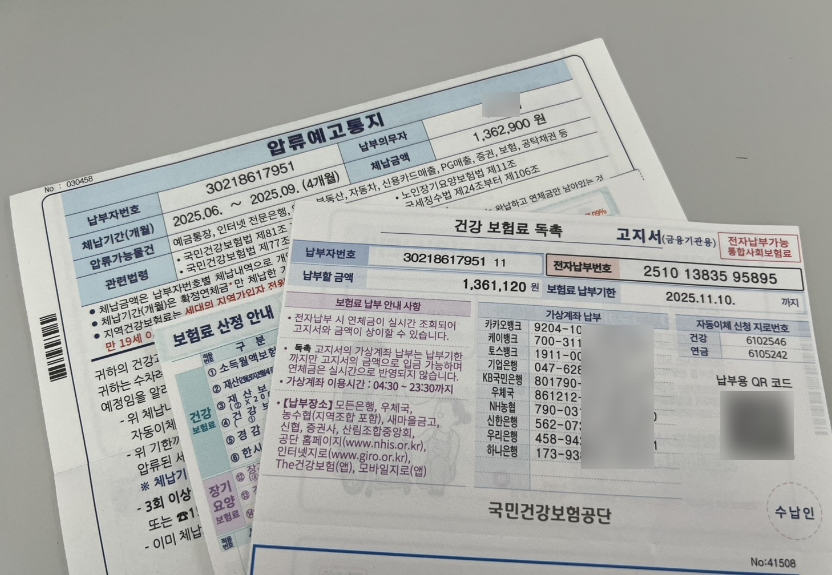 No : 030458
압류예고통지
납부자번호 30218617951 납부의무자
체납기간(개월) 2025.06. ~ 2025.09. (4개월) 체납금액 1,362,900 원
압류가능물건 예금통장, 인터넷 전문은행, 부동산, 자동차, 신용카드매출, PG매출, 증권, 보험, 공탁채권 등
관련법령 • 국민건강보험법 제81조 • 노인장기요양보험법 제11조
• 국민건강보험법 제77조 국세징수법 제24조부터 제106조
• 체납금액은 납부자번호별 체납내역으로
• 체납기간(개월)은 확정연체금
• 지역건강보험료는 세대의 지역가입자 전원
만 19세
귀하의 건강
귀하는
예정임을
- 위 체납
자동이체
- 위 기한까
압류된
※ 체납기
- 3회 이상
또는 ☎1
- 이미 체납
보험료 산정 안내
구 분
건강
보험료
① 소득월액보험
④ 건강
⑤ 경감
⑥ 한시
장기
요양
보험료
건강 보험료 독촉 고지서(금융기관용)
전자납부가능
통합사회보험료
납부자번호 30218617951 11 전자납부번호 2510 13835 95895
납부할 금액 1,361,120 원 보험료 납부기한 2025.11.10. 까지
보험료 납부 안내 사항
• 전자납부 시 연체금이 실시간 조회되어
고지서와 금액이 상이할 수 있습니다.
• 독촉 고지서의 가상계좌 납부는 납부기한
까지만 고지서의 금액으로 입금 가능하며
연체금은 실시간으로 반영되지 않습니다.
• 가상계좌 이용시간 : 04:30 ~ 23:30까지
•【납부장소】모든은행, 우체국,
농수협(지역조합 포함), 새마을금고,
신협, 증권사, 산림조합중앙회,
공단 홈페이지(www.nhis.or.kr),
인터넷지로(www.giro.or.kr),
The건강보험(앱), 모바일지로(앱)
가상계좌 납부
카카오뱅크 9204-10
케이뱅크 700-311
토스뱅크 1911-00
기업은행 047-628
KB국민은행 801790-
우체국 861212-
NH농협 790-03
신한은행 562-07
우리은행 458-94
하나은행 173-93
자동이체 신청 지로번호
건강 6102546
연금 6105242
납부용 QR 코드
국민건강보험공단
수납인
No:41508